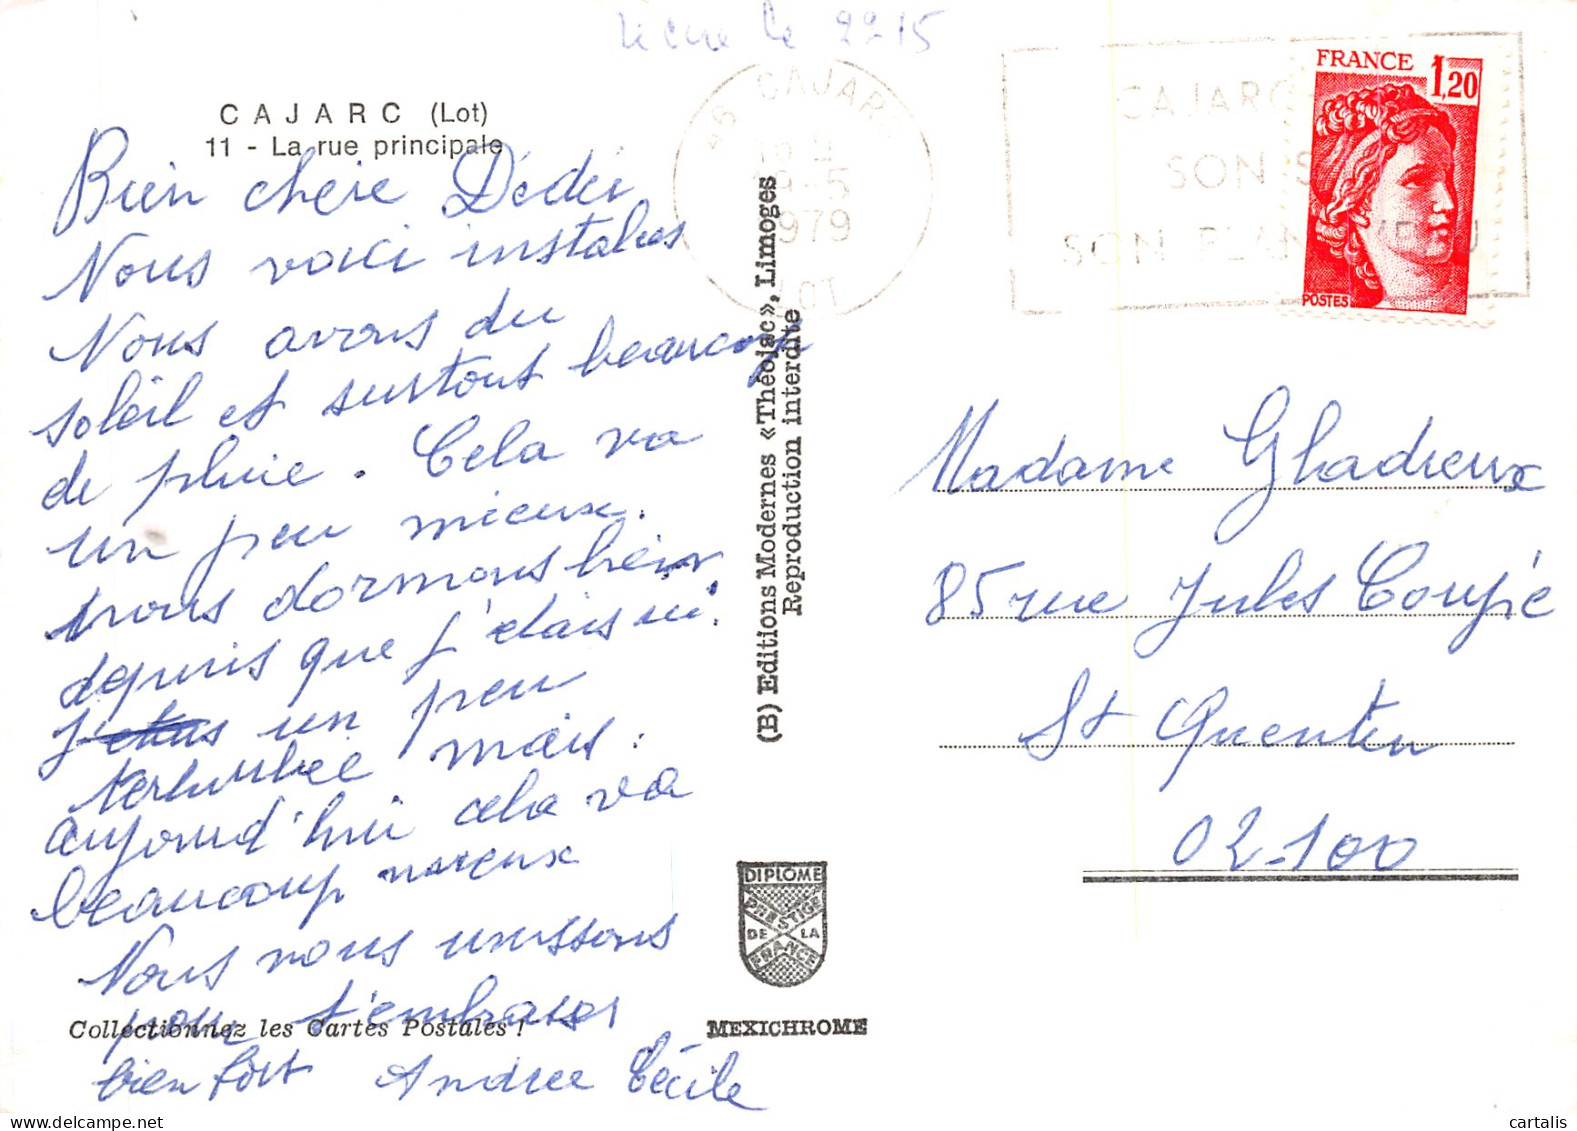 CAJARC (Lot)
11 - La rue principale
Bien chère Dédée
Nous voici installées
Nous avons du
soleil et surtout beaucoup
de pluie. Cela va
un peu mieux.
nous dormons bien
depuis que j'étais ici.
un peu
mais
aujourd'hui cela va
beaucoup mieux
Nous nous unissons
pour t'embrasser
bien fort Andrée Cécile
Collectionnez les Cartes Postales !
(B) Editions Modernes «Théojac», Limoges
Reproduction interdite
DIPLOME
PRESTIGE
DE LA
FRANCE
MEXICHROME
le 22-5
46 CAJARC
19-5
1979
LOT
CAJARC
SON
SON PLAN
FRANCE 1,20
POSTES
Madame Ghadreux
85 rue Jules Coupié
St Quentin
02-100
cartalis.com